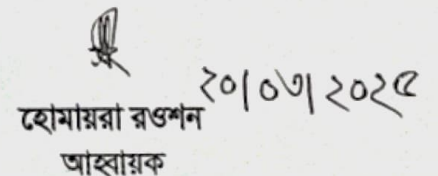 ২০/০৩/২০২৫
হোমায়রা রওশন
আহবায়ক